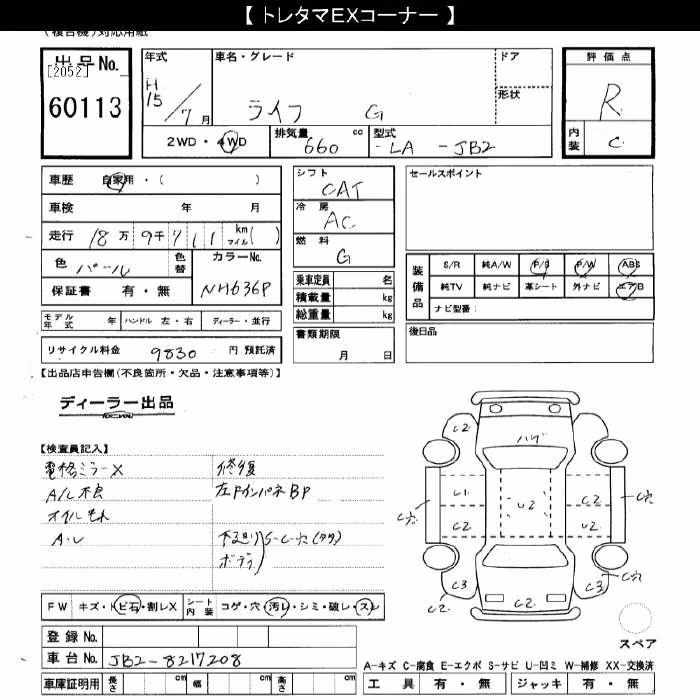 【 トレタマEXコーナー 】
(複合機) 対応用紙
出品No.
[2052]
60113
年式
H 15 / 7 月
車名・グレード
ライフ G
ドア
形状
2WD・4WD
排気量 660 cc
型式 -LA -JB2
評価点
R
内装 C
車歴 自家用・( )
車検 年 月
走行 18万 9千 7 1 1 km マイル ( )
色 パール
色替
カラーNo. NH636P
保証書 有・無
モデル年式 年 ハンドル 左・右 ディーラー・並行
リサイクル料金 9830 円 預託済
シフト CAT
冷房 AC
燃料 G
乗車定員 名
積載量 kg
総重量 kg
書類期限
月 日
セールスポイント
装備品
S/R 純A/W P/S P/W ABS
純TV 純ナビ 革シート 外ナビ エアB
ナビ型番:
後日品
【出品店申告欄(不良箇所・欠品・注意事項等)】
ディーラー出品
【検査員記入】
電格ミラーX
A/C不良
オイルもれ
修復
左Fインパネ BP
下廻り
ボデー
S-C-穴
C2
C2
ハゲ
U1
U2
C2
C穴
C穴
C2
U2
C3
C2
C2
C3
C穴
FW キズ・トビ石・割レX
シート内装 コゲ・穴・汚レ・シミ・破レ・スレ
登録No.
車台No. JB2-8217208
車庫証明用 長さ cm 幅 cm 高さ cm
スペア
A-キズ C-腐食 E-エクボ S-サビ U-凹ミ W-補修 XX-交換済
工具 有・無 ジャッキ 有・無